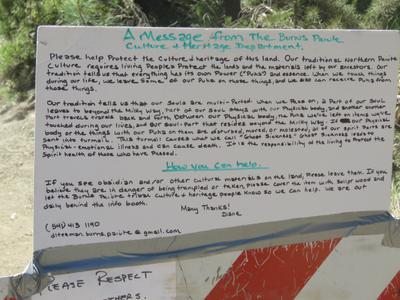 A Message from The Burns Paiute
Culture & Heritage Department.
Please help Protect the Culture & heritage of this land. Our traditional Northern Paiute
Culture requires living Peoples Protect the lands and the materials left by our ancestors. Our
tradition tells us that everything has its own Power ("Puha") and essence. When we touch things
during our life, we leave some of our Puha on those things, and we also can receive Puha from
those things.
Our tradition tells us that our Souls are multi-Parted. When we Pass on, a Part of our Soul
leaves to beyond the Milky Way, Part of our Soul stays with our Physical body, and another number
Part travels back and forth between our Physical body, the Puha we've left on items we've
touched during our lives, and our Soul-Part that resides beyond the Milky Way. If our Physical
body or the things with our Puha on them are disturbed, moved, or molested, all of our Spirit Parts are
sent into turmoil. This turmoil causes what we call "Ghost Sickness." Ghost Sickness leads to
Physical + emotional illness and can cause death. It is the responsibility of the living to Protect the
Spirit health of those who have Passed.
How you can help...
If you see obsidian and/or other cultural materials on the land, Please leave them. If you
believe they are in danger of being trampled or taken, please cover the item with soil or wood and
let the Burns Paiute tribal culture & heritage people know so we can help. We are out
daily behind the info booth.
Many Thanks!
Diane
(541) 413 1190
diteeman.burns.paiute@gmail.com
PLEASE RESPECT
OTHERS.